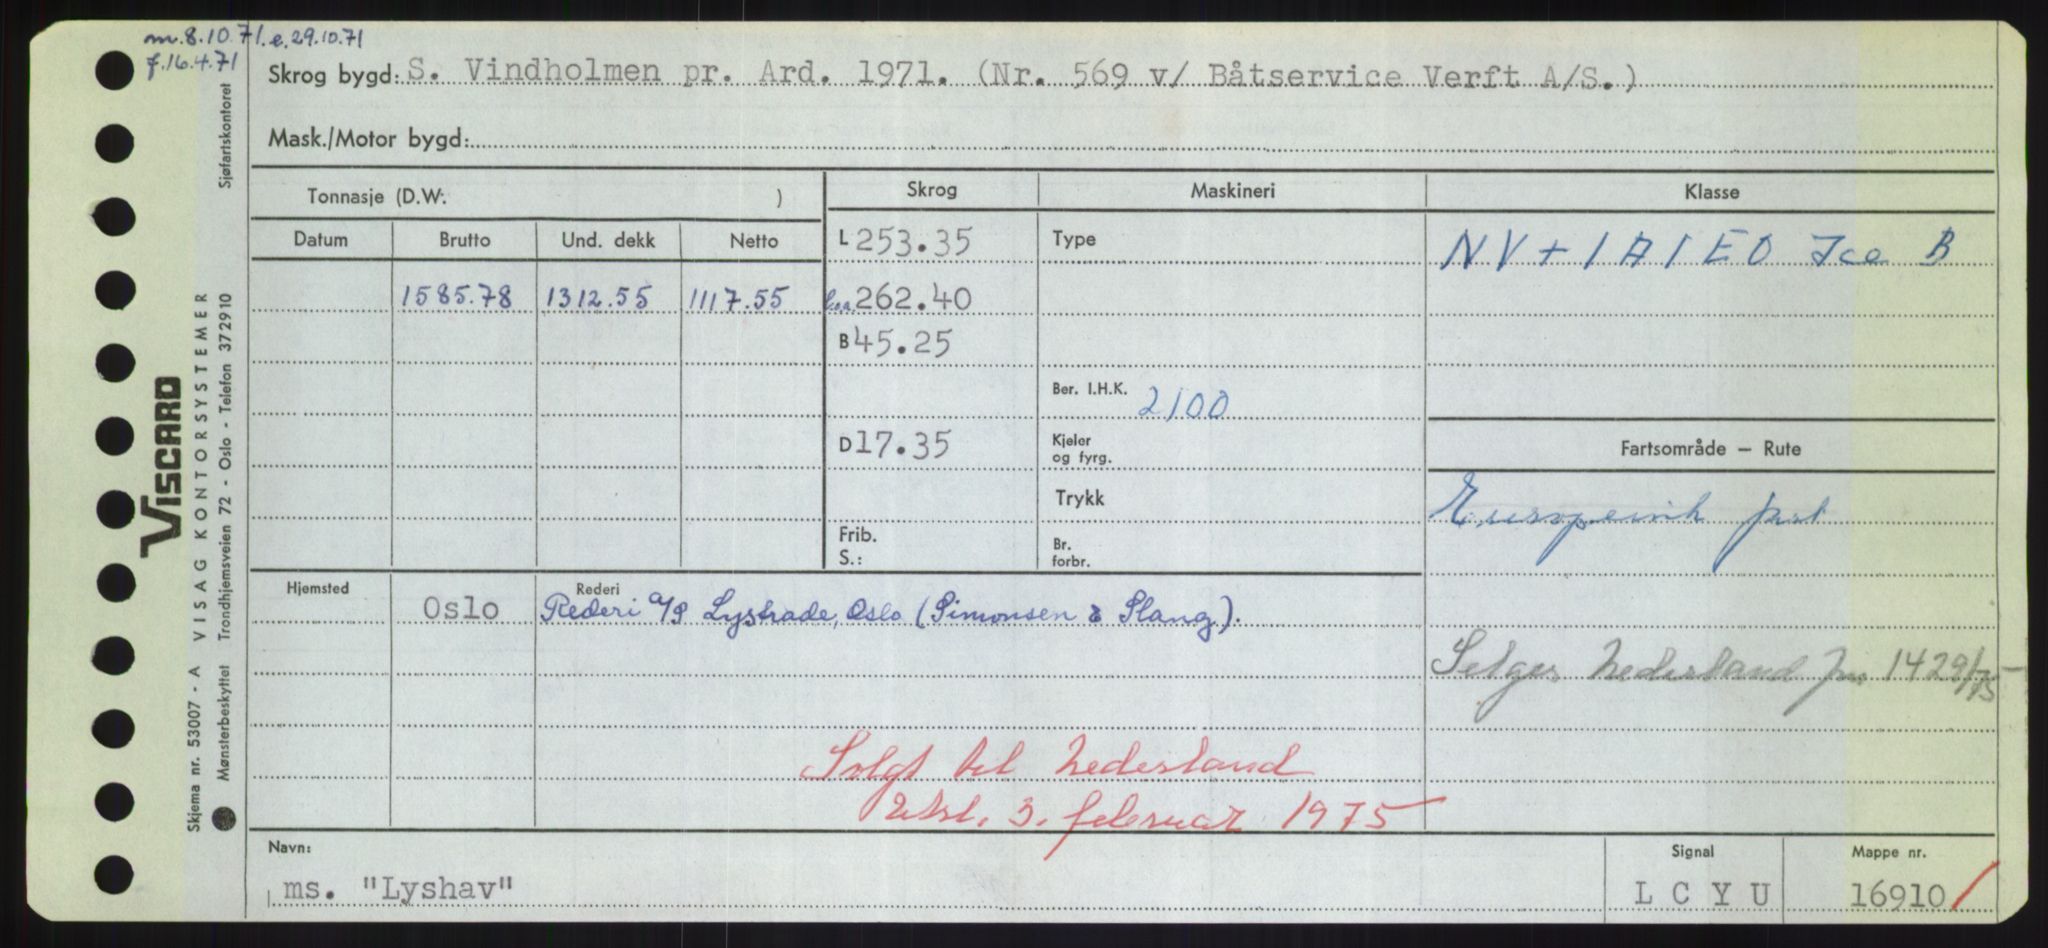 m.8.10.71. e.29.10.71
f.16.4.71
Skrog bygd: S. Vindholmen pr. Ard. 1971. (Nr. 569 v/ Båtservice Verft A/S.)
Mask./Motor bygd:
Tonnasje (D.W: )
Skrog
Maskineri
Klasse
Datum Brutto Und. dekk Netto
L 253.35
Type
NV + 1A1 EO Ice B
1585.78 1312.55 1117.55
l.o.a. 262.40
B 45.25
Ber. I.H.K. 2100
D 17.35
Kjeler
og fyrg.
Fartsområde — Rute
Trykk
Europeisk fart
Frib.
S.:
Br.
forbr.
Hjemsted
Rederi
Oslo
Rederi A/S Lystrade, Oslo (Simonsen & Slang).
Selges Nederland 1429/75
Solgt til Nederland
3. februar 1975
Navn:
ms. "Lyshav"
Signal
LCYU
Mappe nr.
16910 /
VISCARD
Skjema nr. 53007 - A VISAG KONTORSYSTEMER
Mønsterbeskyttet Trondhjemsveien 72 - Oslo - Telefon 372910 Sjøfartskontoret